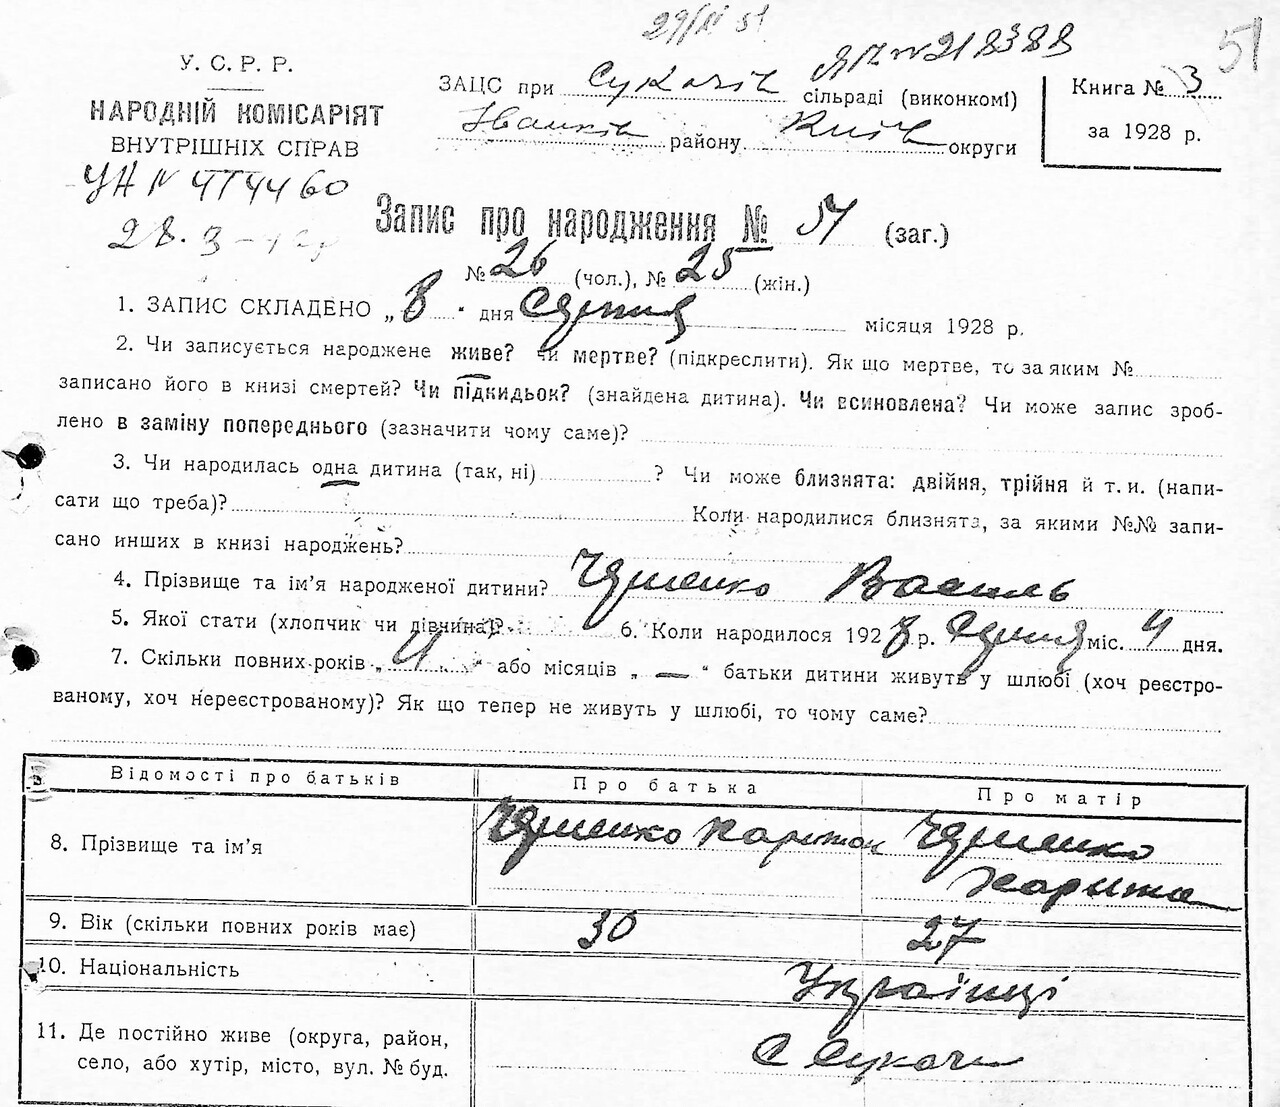 51
У. С. Р. Р.
НАРОДНІЙ КОМІСАРІЯТ
ВНУТРІШНІХ СПРАВ
УН N 4П4460
28.
ЯП N 218388
ЗАЦС при Сукачів сільраді (виконкомі)
Іванків району Київ округи
Книга № 3
за 1928 р.
Запис про народження № 51 (заг.)
№ 26 (чол.), № 25 (жін.)
1. ЗАПИС СКЛАДЕНО „ 8 “ дня Серпня місяця 1928 р.
2. Чи записується народжене живе? чи мертве? (підкреслити). Як що мертве, то за яким №
записано його в книзі смертей? Чи підкидьок? (знайдена дитина). Чи всиновлена? Чи може запис зроб-
лено в заміну попереднього (зазначити чому саме)?
3. Чи народилась одна дитина (так, ні) ? Чи може близнята: двійня, трійня й т. и. (напи-
сати що треба)? Коли народилися близнята, за якими №№ запи-
сано инших в книзі народжень?
4. Прізвище та ім’я народженої дитини? Василь
5. Якої стати (хлопчик чи дівчина)? 6. Коли народилося 1928 р. Серпня міс. 4 дня.
7. Скільки повних років „ 4 “ або місяців „ — “ батьки дитини живуть у шлюбі (хоч реєстро-
ваному, хоч нереєстрованому)? Як що тепер не живуть у шлюбі, то чому саме?
Відомості про батьків Про батька Про матір
8. Прізвище та ім’я Харитон
9. Вік (скільки повних років має) 30 27
10. Національність Українці
11. Де постійно живе (округа, район,
село, або хутір, місто, вул. № буд. С Сукачі